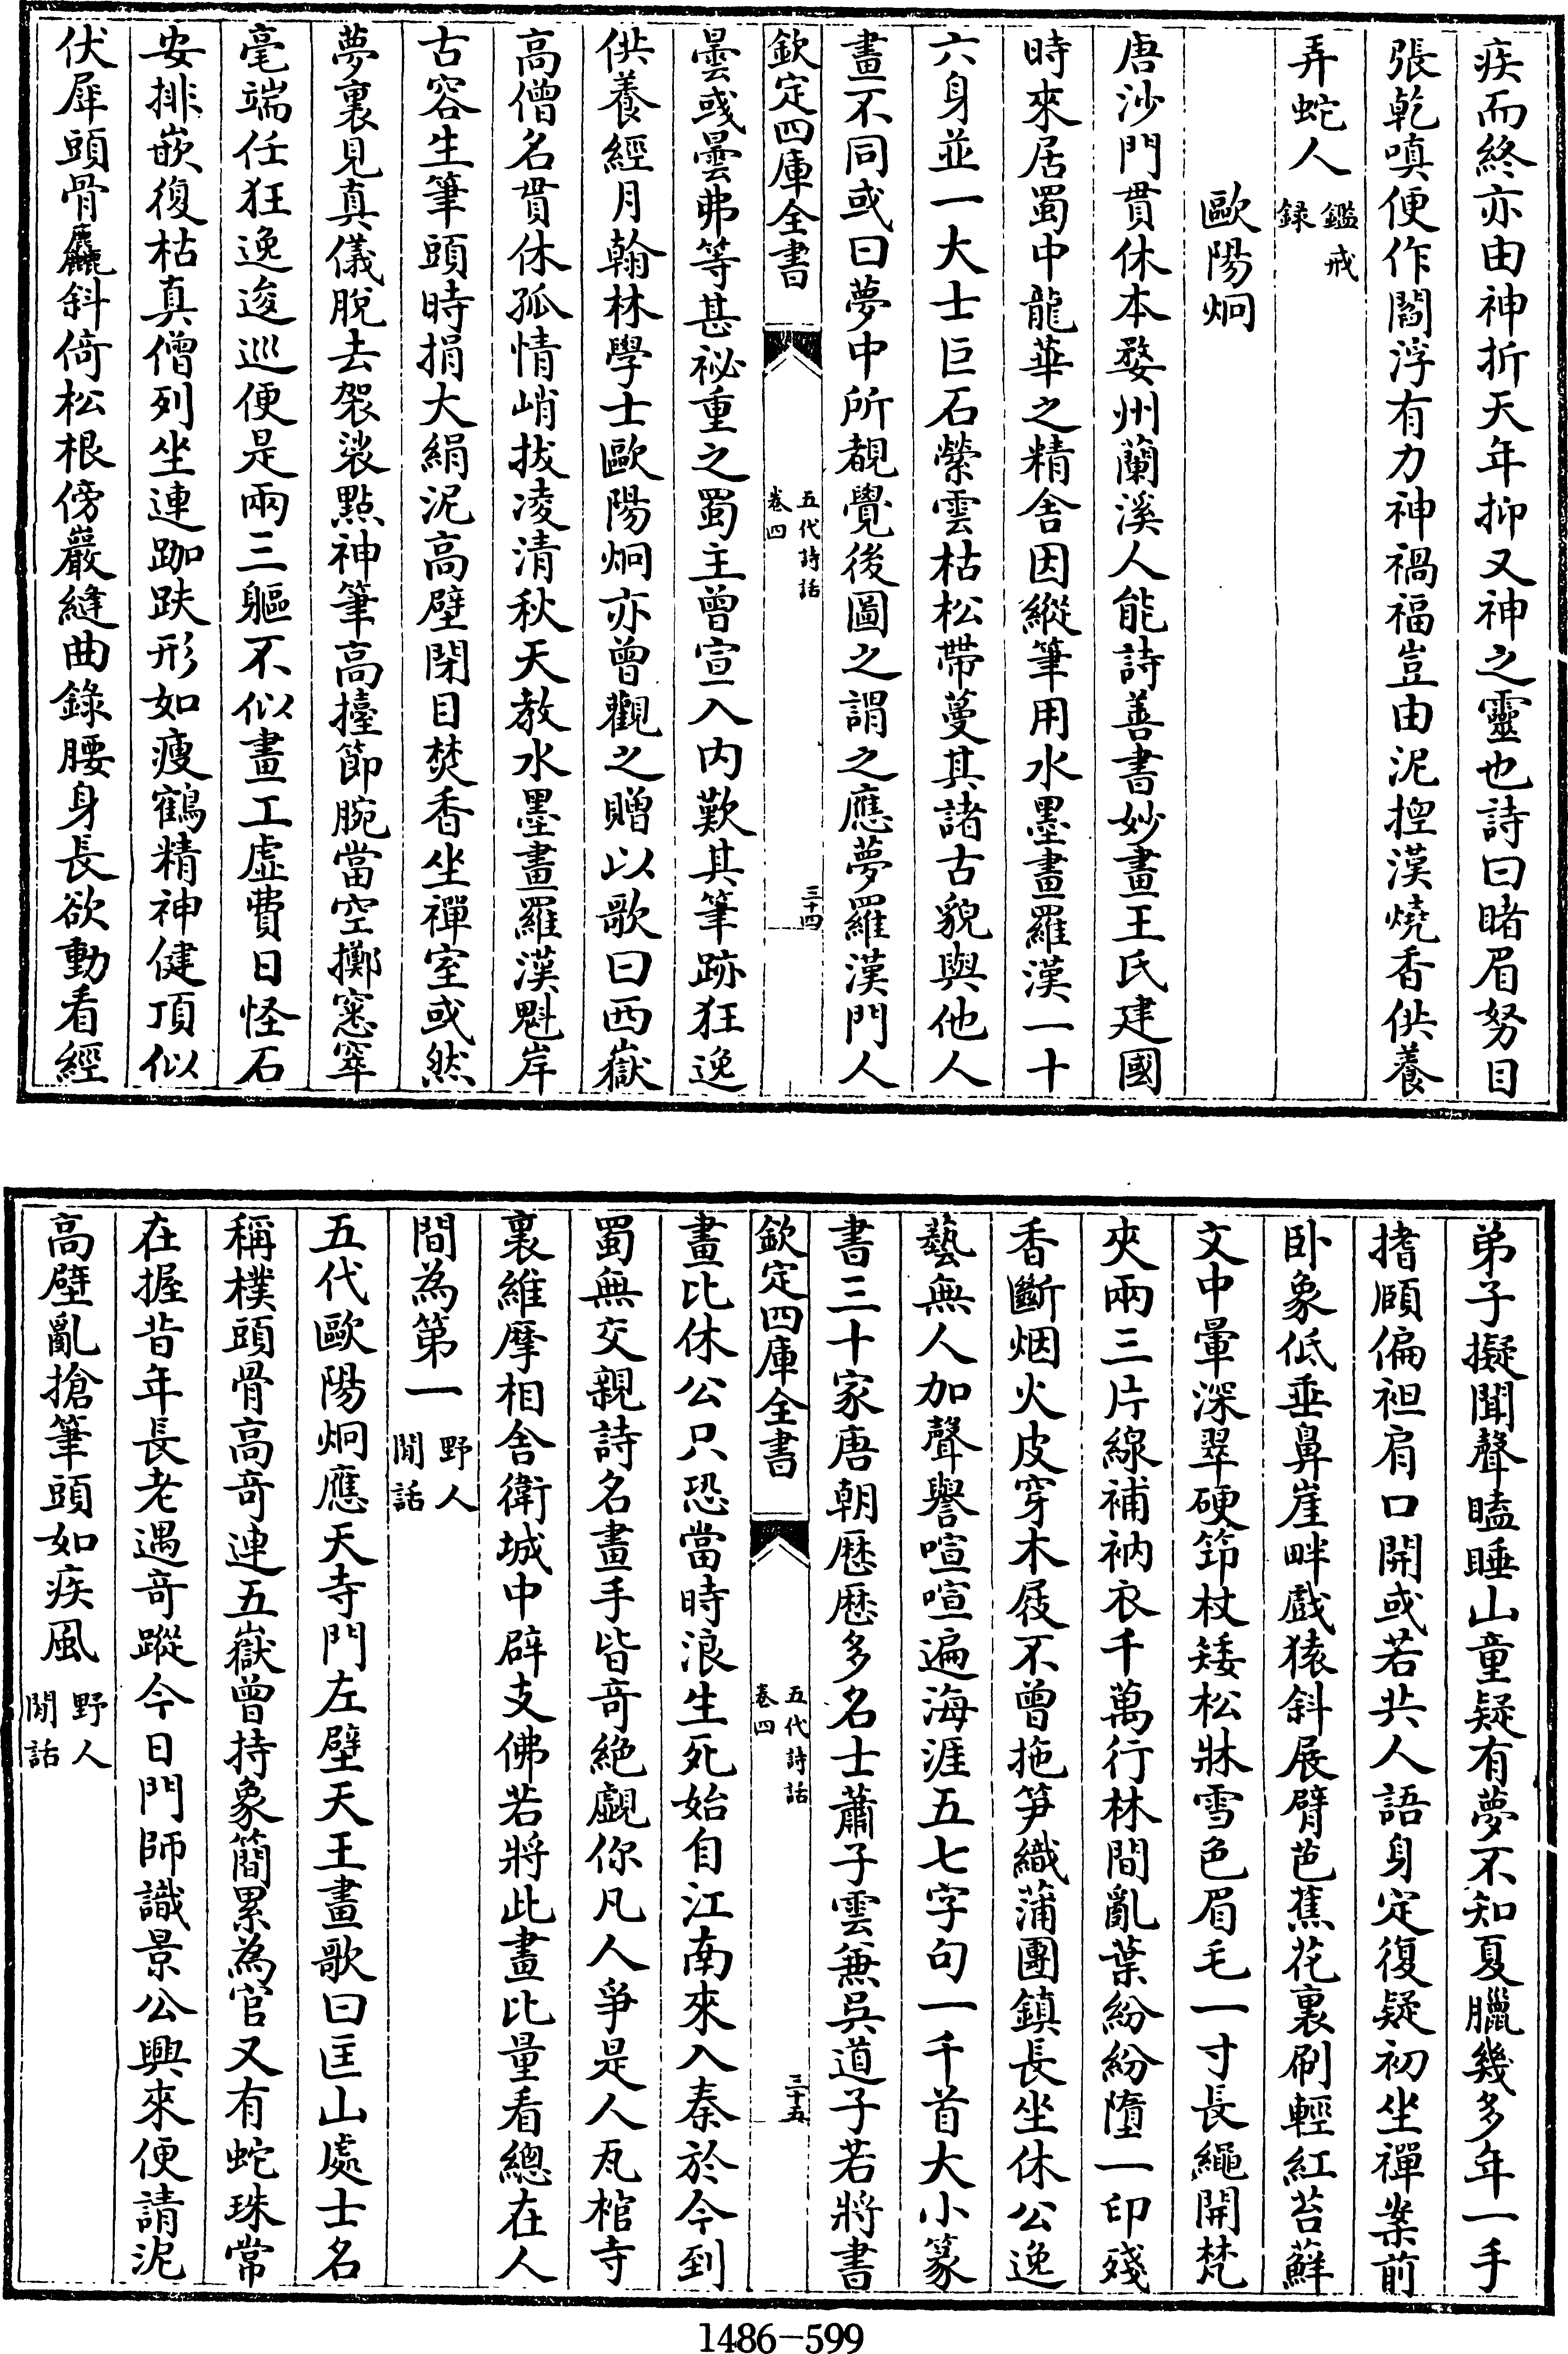 疾而終亦由神折天年抑又神之靈也詩曰睹眉努目
張乾嗔便作閻浮有力神禍福豈由泥捏漢燒香供養
弄蛇人鑑戒
録
歐陽炯
唐沙門貫休本婺州蘭溪人能詩善書妙畫王氏建國
時來居蜀中龍華之精舎因縱筆用水墨畫羅漢一十
六身並一大士巨石縈雲枯松帶蔓其諸古貌與他人
畫不同或曰夢中所覩覺後圖之謂之應夢羅漢門人
欽定四庫全書
五代詩話
卷四
三十四
曇彧曇弗等甚祕重之蜀主曾宣入内歎其筆跡狂逸
供養經月翰林學士歐陽炯亦曾觀之贈以歌曰西嶽
高僧名貫休孤情峭拔凌清秋天教水墨畫羅漢魁岸
古容生筆頭時捐大絹泥高壁閉目焚香坐禪室或然
夢裏見真儀脫去袈裟點神筆高擡節腕當空擲窸窣
毫端任狂逸逡巡便是兩三軀不似畫工虛費日怪石
安排嵌復枯真僧列坐連跏趺形如瘦鶴精神健頂似
伏犀頭骨麤斜倚松根傍巖縫曲錄腰身長欲動看經
弟子擬聞聲瞌睡山童疑有夢不知夏臘幾多年一手
搘頤偏袒肩口開或若共人語身定復疑初坐禪案前
卧象低垂鼻崖畔戲猿斜展臂芭蕉花裏刷輕紅苔蘚
文中暈深翠硬筇杖矮松牀雪色眉毛一寸長繩開梵
夾兩三片線補衲衣千萬行林間亂葉紛紛墮一印殘
香斷烟火皮穿木屐不曾拖笋織蒲團鎮長坐休公逸
藝無人加聲譽喧喧遍海涯五七字句一千首大小篆
書三十家唐朝歷歷多名士蕭子雲兼吳道子若將書
欽定四庫全書
五代詩話
卷四
三十五
畫比休公只恐當時浪生死始自江南來入秦於今到
蜀無交親詩名畫手皆竒絶覷你凡人爭是人瓦棺寺
裏維摩相舎衛城中辟支佛若將此畫比量看總在人
間為第一野人
閒話
五代歐陽炯應天寺門左壁天王畫歌曰匡山處士名
稱樸頭骨高竒連五嶽曾持象簡累為官又有蛇珠常
在握昔年長老遇竒蹤今日門師識景公興來便請泥
高壁亂搶筆頭如疾風野人
閒話
1486-599